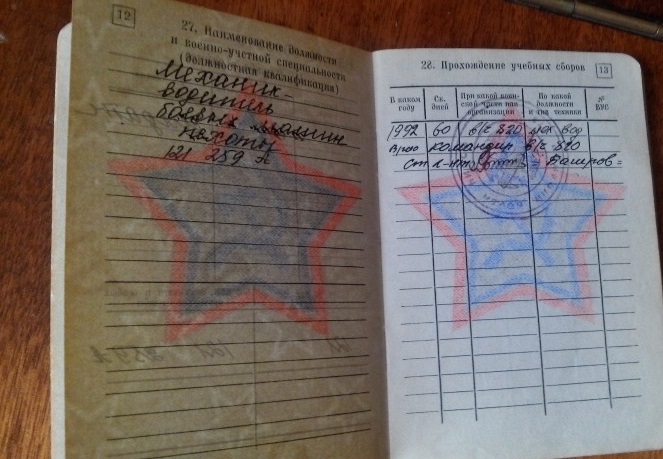 12
27. Наименование должности
и военно-учетной специальности
(должностная квалификация)
Механик-
водитель
боевых машин
пехоты
121 259 А
28. Прохождение учебных сборов 13
В каком году
Ск. дней
При какой воинской части или организации
По какой должности и тип техники
№ ВУС
1992 60 в/ч 320 мех вод
Врио командир в/ч 320
ст. л-нт Баширов